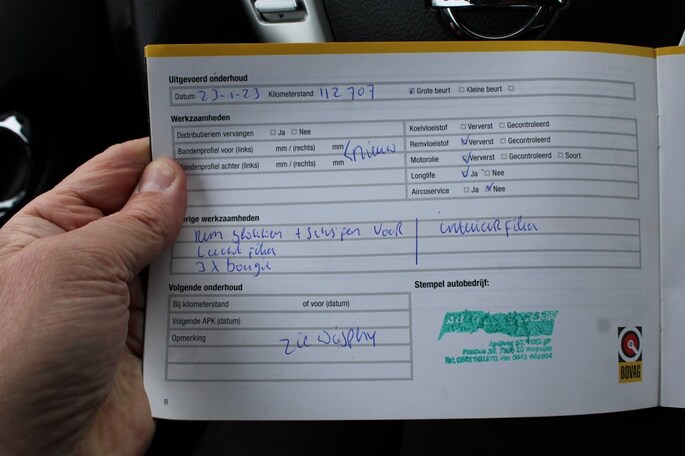 Uitgevoerd onderhoud
Datum 23-1-23 Kilometerstand 112 707 Grote beurt Kleine beurt
Werkzaamheden
Distributieriem vervangen Ja Nee
Bandenprofiel voor (links) mm / (rechts) mm nieuw
Bandenprofiel achter (links) mm / (rechts) mm
Koelvloeistof Ververst Gecontroleerd
Remvloeistof Ververst Gecontroleerd
Motorolie Ververst Gecontroleerd Soort
Longlife Ja Nee
Aircoservice Ja Nee
erige werkzaamheden
Rem blokken + schijven voor
Lucht filter
3 x bougie
interieur filter
Volgende onderhoud
Bij kilometerstand of voor (datum)
Volgende APK (datum)
Opmerking zie display
Stempel autobedrijf:
BOVAG
8